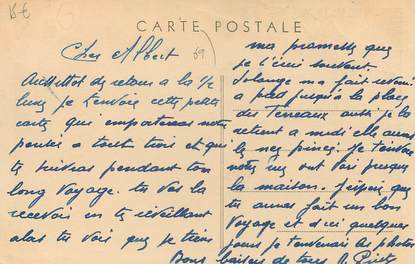 15€
CARTE POSTALE
69
Cher Albert
Aussittot de retour a la
je t'envoie cette petite
carte que emporteras notre
pensée a tout trois et qui
te suivras pendant ton
long voyage. tu vas la
recevoir en te réveillant
alas tu vois que je tiens
ma promesse que
je t'écri souvent.
Solange m a fait revenir
a pied jusqu'à la place
des Terreaux aussi je la
retient a midi elle aura
les
notre ont vois presque
la maison. J'espère que
tu auras fait un bon
Voyage et d'ici quelques
jours je t'enverrais les photos
Bons baisers de tous